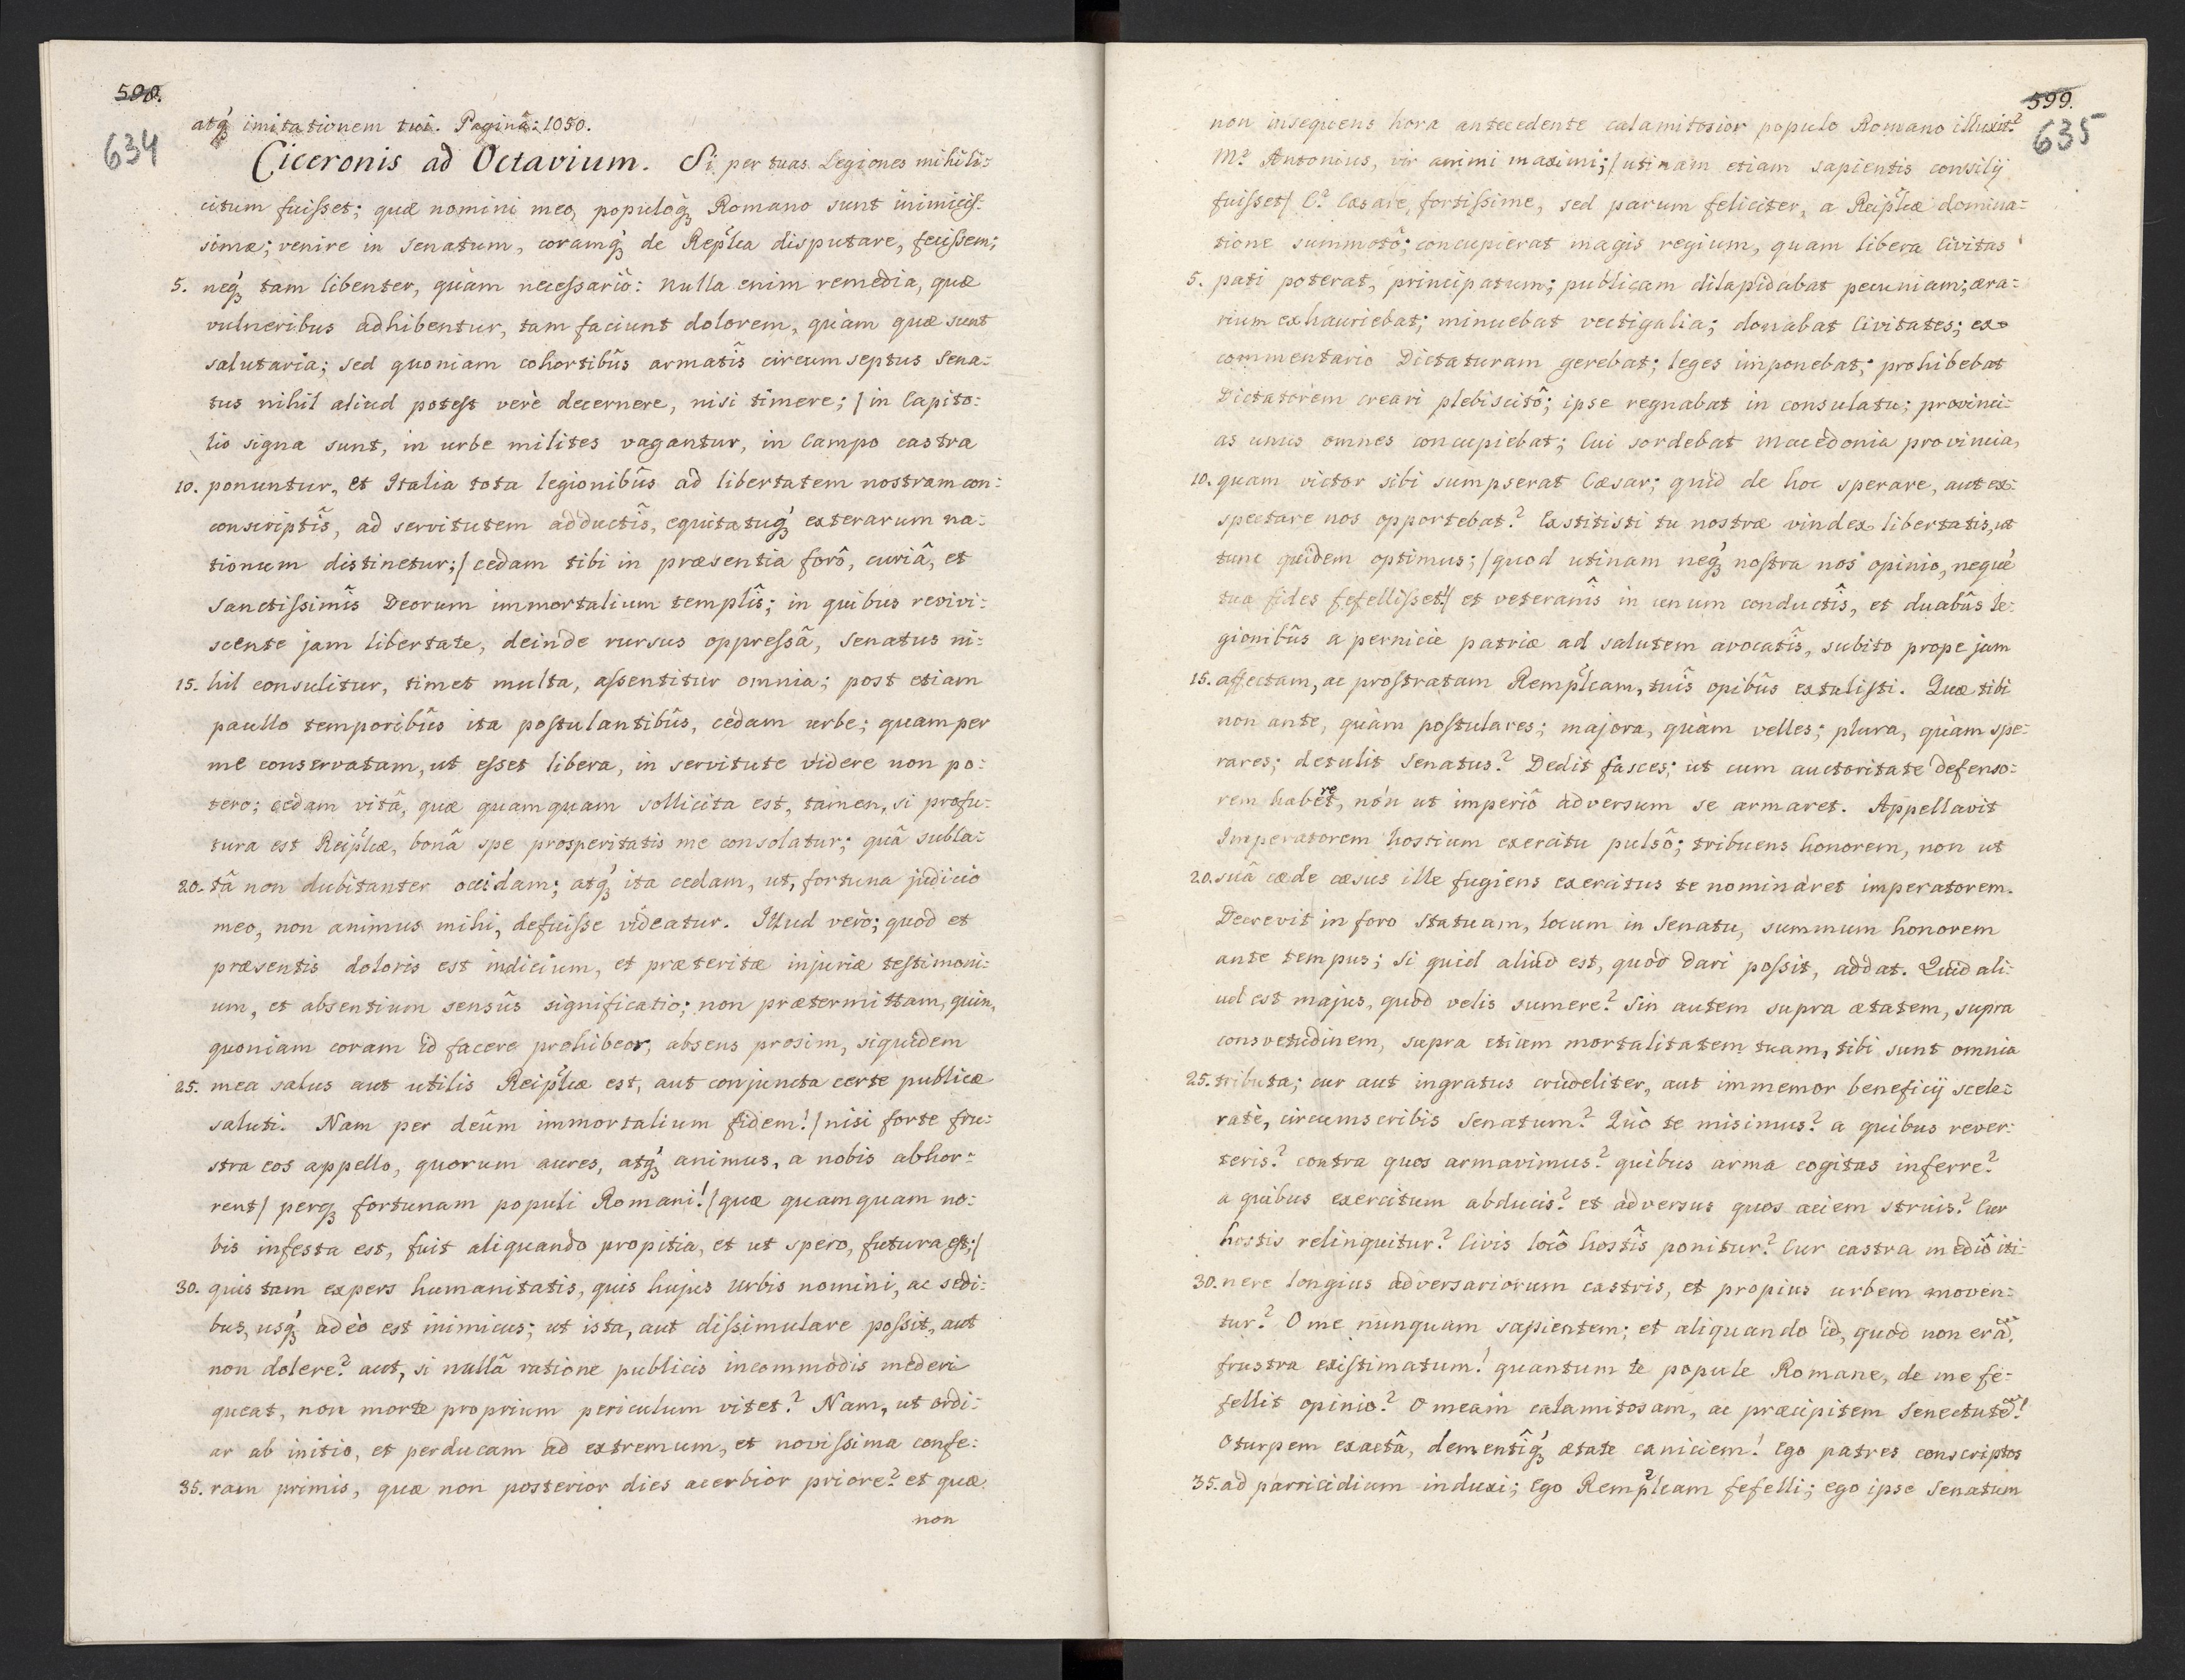 598.
634
atq́ꝫ imitationem tui. Paginâ: 1050.
Ciceronis ad Octavium. Si per tuas Legiones mihi li=
citum fuiſset; quæ nomini meo, populoq́ꝫ Romano sunt inimiciſ=
simæ; venire in Senatum, coramq́ꝫ de Rep̃lca disputare, feciſsem;
5. neq́ꝫ tam libenter, quàm neceſsariò: nulla enim remedia, quæ
vulneribus adhibentur, tam faciunt dolorem, quàm quæ sunt
salutaria; sed quoniam cohortibûs armatîs circumseptus Sena=
tus nihil aliud poteſt verè decernere, nisi timere; / in Capito=
lio signa sunt, in urbe milites vagantur, in Campo castra
10. ponuntur, et Italia tota legionibûs ad libertatem nostram con=
conscriptîs, ad servitutem adductîs, equitatuq́ꝫ exterarum na=
tionum distinetur; / cedam tibi in præsentia forô, curiâ, et
Sanctiſsimîs Deorum immortalium templîs; in quibus revivi=
scente jam libertate, deinde rursus oppreſsâ, Senatus ni=
15. hil consulitur, timet multa, aſsentitur omnia; post etiam
paullo temporibûs ita poſtulantibûs, cedam urbe; quam per
me conservatam, ut eſset libera, in servitute videre non po=
tero; cedam vitâ, quæ quamquam sollicita est, tamen, si profu=
tura est Reip̃lcæ, bonâ spe prosperitatis me consolatur; quâ subla=
20. tâ non dubitanter occidam; atq́ꝫ ita cedam, ut, fortuna judicio
meo, non animus mihi, defuiſse videatur. Illud verò; quod et
præsentis doloris est indicium, et præteritæ injuriæ teſtimoni=
um, et absentium sensûs significatio; non prætermittam, quin,
quoniam coram id facere prohibeor, absens prosim, siquidem
25. mea salus aut utilis Reip̃lcæ est, aut conjuncta certe publicæ
saluti. Nam per deûm immortalium fidem! / nisi forte fru=
stra eos appello, quorum aures, atq́ꝫ animus, a nobis abhor=
rent / perqꝫ fortunam populi Romani! / quæ quamquam no=
bis infesta est, fuit aliquando propitia, et ut spero, futura eſt; /
30. quis tam expers humanitatis, quis hujus Urbis nomini, ac sedi=
bus, usq́ꝫ adeò est inimicus; ut ista, aut diſsimulare poſsit, aut
non dolere? aut, si nullâ ratione publicis incommodis mederi
queat, non morte proprium periculum vitet? Nam, ut ordi=
ar ab initio, et perducam ad extremum, et noviſsima confe=
35. ram primis, quæ non posterior dies acerbior priore? et quæ
non
599.
635
non insequens hora antecedente calamitosior populo Romano illuxit?
M. Antonius, vir animi maximi; / utinam etiam sapientis consilij
fuiſset / C. Cæsare, fortiſsime, sed parum feliciter, a Reip̃lcæ domina=
tione summotô; concupierat magis regium, quam libera Civitas
5. pati poterat, principatum; publicam dilapidabat pecuniam; æra=
rium exhauriebat; minuebat vectigalia; donabat Civitates; ex
commentario Dictaturam gerebat; leges imponebat; prohibebat
Dictatorem creari plebiscitô; ipse regnabat in consulatu; provinci=
as unus omnes concupiebat; Cui sordebat Macedonia provincia,
10. quam victor sibi sumpserat Cæsar; quid de hoc sperare, aut ex=
spectare nos opportebat? Exstitisti tu nostræ vindex libertatis, ut
tunc quidem optimus; / quod utinam neq́ꝫ noſtra nos opinio, neque
tua fides fefelliſset / et veteranîs in unum conductîs, et duabûs le=
gionibûs a pernicie patriæ ad salutem avocatîs, subito prope jam
15. affectam, ac proſtratam Remp̃lcam, tuîs opibûs extuliſti. Quæ tibi
non ante, quàm poſtulares; majora, quàm velles; plura, quàm spe=
rares; detulit Senatus? Dedit fasces; ut cum auctoritate defenso=
rem haberet, non ut imperiô adversum se armaret. Appellavit
Imperatorem hostium exercitu pulsô; tribuens honorem, non ut
20. suâ cæde cæsus ille fugiens exercitus te nominaret imperatorem.
Decrevit in foro Statuam, locum in Senatu, summum honorem
ante tempus; Si quid aliud est, quod dari poſsit, addat. Quid ali=
ud est majus, quod velis sumere? Sin autem supra ætatem, supra
consvetudinem, supra etiam mortalitatem tuam, tibi sunt omnia
25. tributa; cur aut ingratus crudeliter, aut immemor beneficij scele=
ratè, circumscribis Senatum? Quò te misimus? a quibus rever=
teris? contra quos armavimus? quibus arma cogitas inferre?
a quibus exercitum abducis? et adversus quos aciem struis? Cur
hostis relinquitur? Civis locô hostîs ponitur? Cur castra mediô iti=
30. nere longius adversariorum castris, et propius urbem moven=
tur? O me nunquam sapientem; et aliquando id, quod non erã,
frustra exiſtimatum! quantum te popule Romane, de me fe=
fellit opinio? O meam calamitosam, ac præcipitem Senectutẽ!
O turpem exactâ, dementîq́ꝫ ætate caniciem! Ego patres conscriptos
35. ad parricidium induxi; Ego Remp̃lcam fefelli; ego ipse Senatum